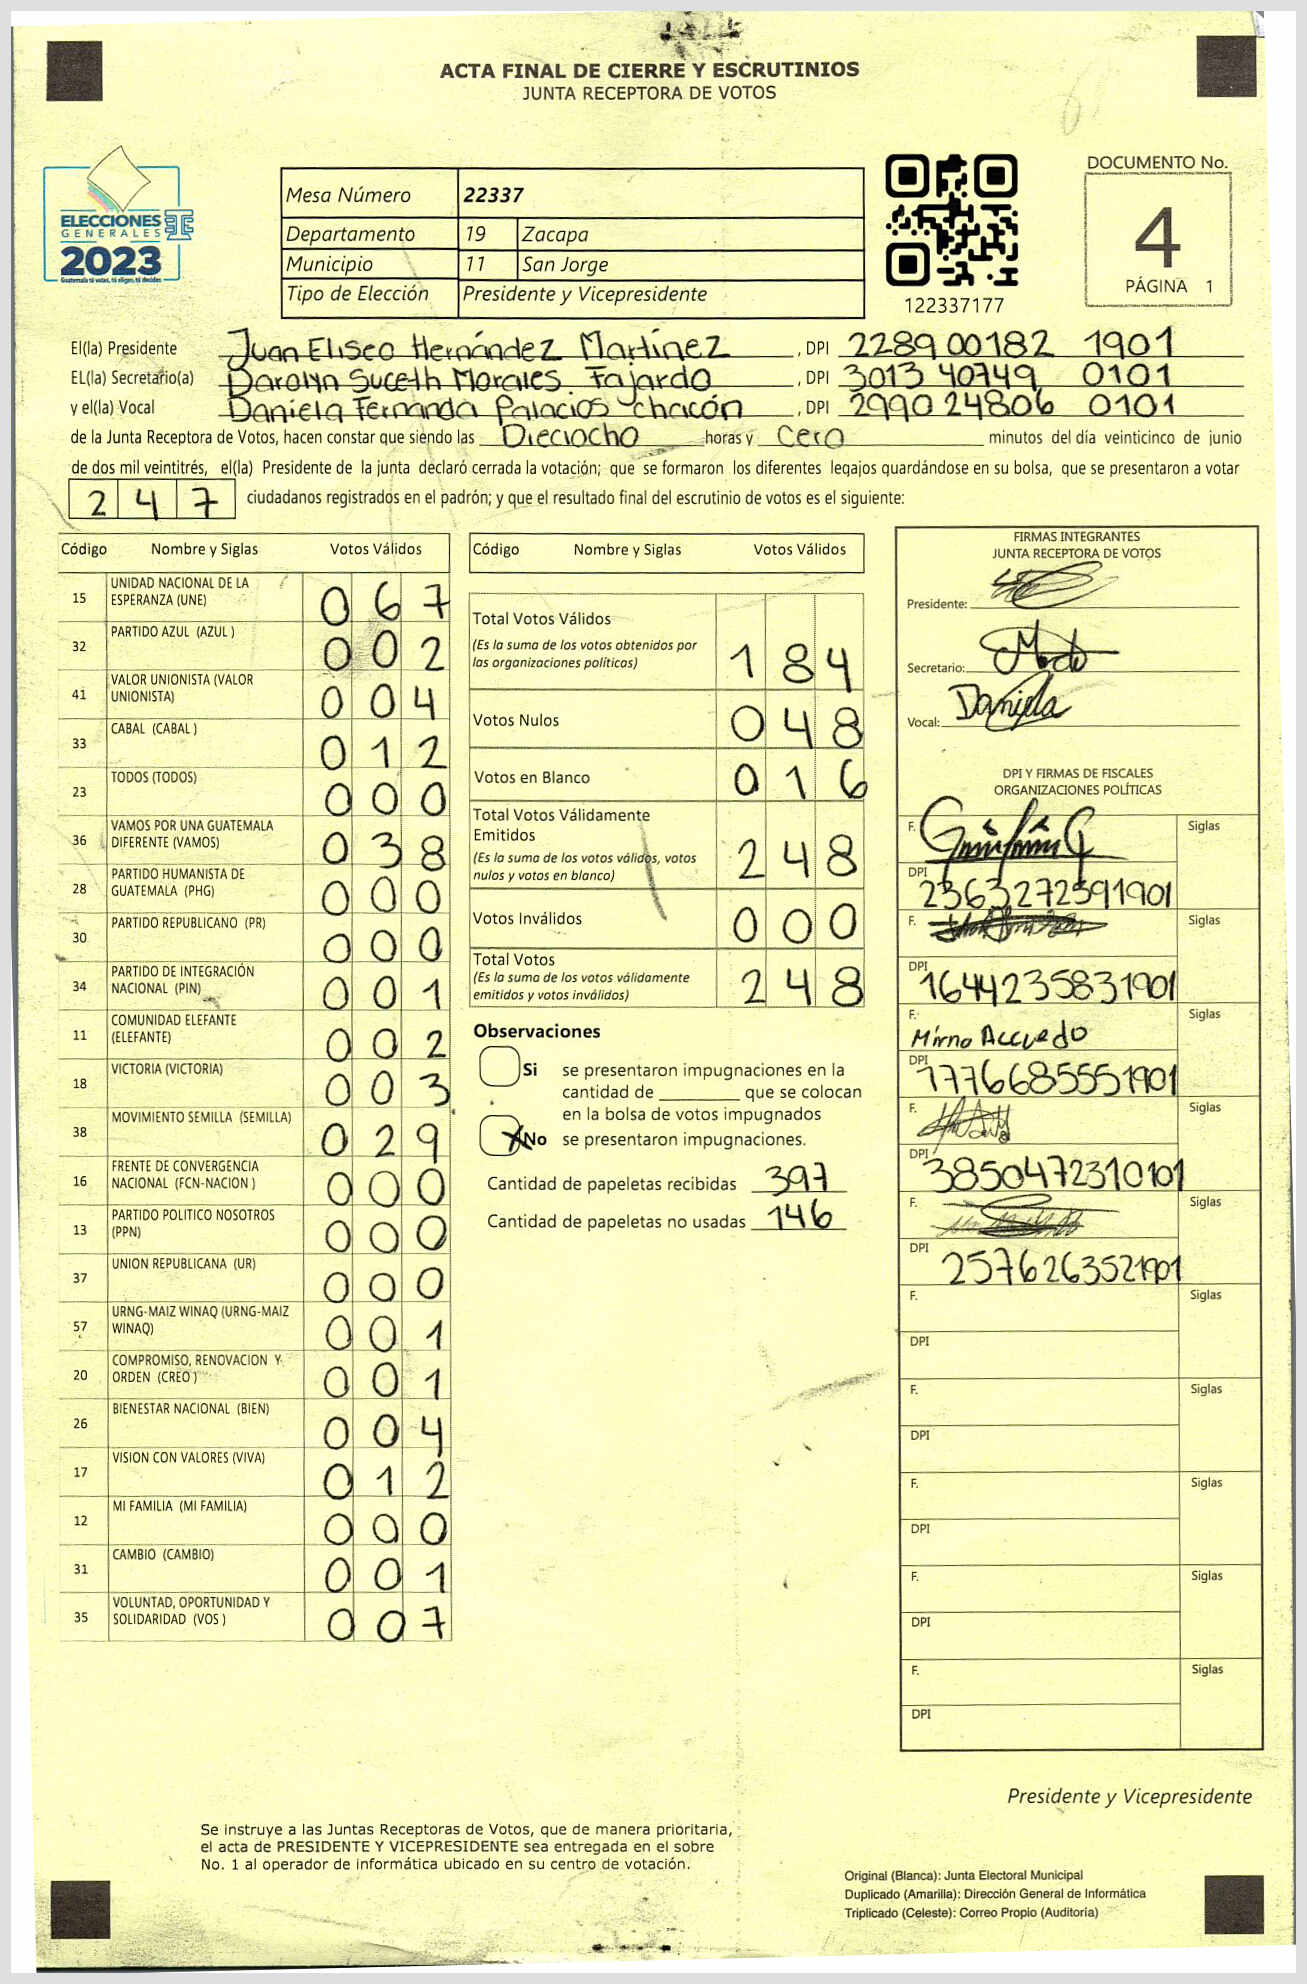 ACTA FINAL DE CIERRE Y ESCRUTINIOS
JUNTA RECEPTORA DE VOTOS
ELECCIONES
GENERALES
2023
Guatemala tú votas, tú eliges, tú decides
Mesa Número 22337
Departamento 19 Zacapa
Municipio 11 San Jorge
Tipo de Elección Presidente y Vicepresidente
122337177
DOCUMENTO No.
4
PÁGINA 1
El(la) Presidente Juan Eliseo Hernández Martínez , DPI 2289 00182 1901
EL(la) Secretario(a) Darolyn Suceth Morales Fajardo , DPI 3013 40749 0101
y el(la) Vocal Daniela Fernanda Palacios Chacón , DPI 2990 24806 0101
de la Junta Receptora de Votos, hacen constar que siendo las Dieciocho horas y Cero minutos del día veinticinco de junio
de dos mil veintitrés, el(la) Presidente de la junta declaró cerrada la votación; que se formaron los diferentes legajos guardándose en su bolsa, que se presentaron a votar
2 4 7 ciudadanos registrados en el padrón; y que el resultado final del escrutinio de votos es el siguiente:
Código Nombre y Siglas Votos Válidos
15 UNIDAD NACIONAL DE LA ESPERANZA (UNE) 0 6 7
32 PARTIDO AZUL (AZUL ) 0 0 2
41 VALOR UNIONISTA (VALOR UNIONISTA) 0 0 4
33 CABAL (CABAL ) 0 1 2
23 TODOS (TODOS) 0 0 0
36 VAMOS POR UNA GUATEMALA DIFERENTE (VAMOS) 0 3 8
28 PARTIDO HUMANISTA DE GUATEMALA (PHG) 0 0 0
30 PARTIDO REPUBLICANO (PR) 0 0 0
34 PARTIDO DE INTEGRACIÓN NACIONAL (PIN) 0 0 1
11 COMUNIDAD ELEFANTE (ELEFANTE) 0 0 2
18 VICTORIA (VICTORIA) 0 0 3
38 MOVIMIENTO SEMILLA (SEMILLA) 0 2 9
16 FRENTE DE CONVERGENCIA NACIONAL (FCN-NACION ) 0 0 0
13 PARTIDO POLITICO NOSOTROS (PPN) 0 0 0
37 UNION REPUBLICANA (UR) 0 0 0
57 URNG-MAIZ WINAQ (URNG-MAIZ WINAQ) 0 0 1
20 COMPROMISO, RENOVACION Y ORDEN (CREO ) 0 0 1
26 BIENESTAR NACIONAL (BIEN) 0 0 4
17 VISION CON VALORES (VIVA) 0 1 2
12 MI FAMILIA (MI FAMILIA) 0 0 0
31 CAMBIO (CAMBIO) 0 0 1
35 VOLUNTAD, OPORTUNIDAD Y SOLIDARIDAD (VOS ) 0 0 7
Código Nombre y Siglas Votos Válidos
Total Votos Válidos 1 8 4
(Es la suma de los votos obtenidos por
las organizaciones políticas)
Votos Nulos 0 4 8
Votos en Blanco 0 1 6
Total Votos Válidamente
Emitidos 2 4 8
(Es la suma de los votos válidos, votos
nulos y votos en blanco)
Votos Inválidos 0 0 0
Total Votos 2 4 8
(Es la suma de los votos válidamente
emitidos y votos inválidos)
Observaciones
Si se presentaron impugnaciones en la
cantidad de ________ que se colocan
en la bolsa de votos impugnados
X No se presentaron impugnaciones.
Cantidad de papeletas recibidas 397
Cantidad de papeletas no usadas 146
FIRMAS INTEGRANTES
JUNTA RECEPTORA DE VOTOS
Presidente:
Secretario:
Vocal: Daniela
DPI Y FIRMAS DE FISCALES
ORGANIZACIONES POLÍTICAS
F. Siglas
DPI 2363272591901
F. Siglas
DPI 1644235831901
F. Mirna Acevedo Siglas
DPI 1776685551901
F. Siglas
DPI 3850472310101
F. Siglas
DPI 2576263521901
F. Siglas
DPI
F. Siglas
DPI
F. Siglas
DPI
F. Siglas
DPI
F. Siglas
DPI
Presidente y Vicepresidente
Se instruye a las Juntas Receptoras de Votos, que de manera prioritaria,
el acta de PRESIDENTE Y VICEPRESIDENTE sea entregada en el sobre
No. 1 al operador de informática ubicado en su centro de votación.
Original (Blanca): Junta Electoral Municipal
Duplicado (Amarilla): Dirección General de Informática
Triplicado (Celeste): Correo Propio (Auditoría)